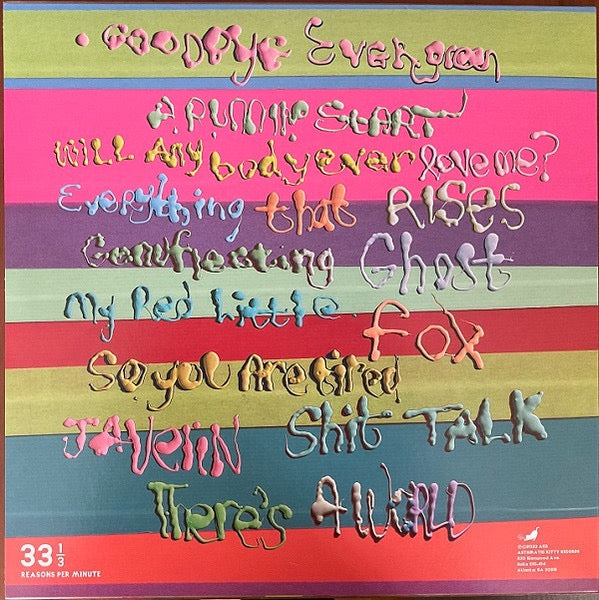 GOODBYE EVERgreen
A RUNNING START
WILL Any body ever love me?
Everything that RISES
Genuflecting Ghost
My Red Little Fox
So you Are tired
JAVELIN Shit TALK
There's A WORLD
33 1/3
REASONS PER MINUTE
ASTHMATIC KITTY RECORDS
Glenwood Ave.
Atlanta GA